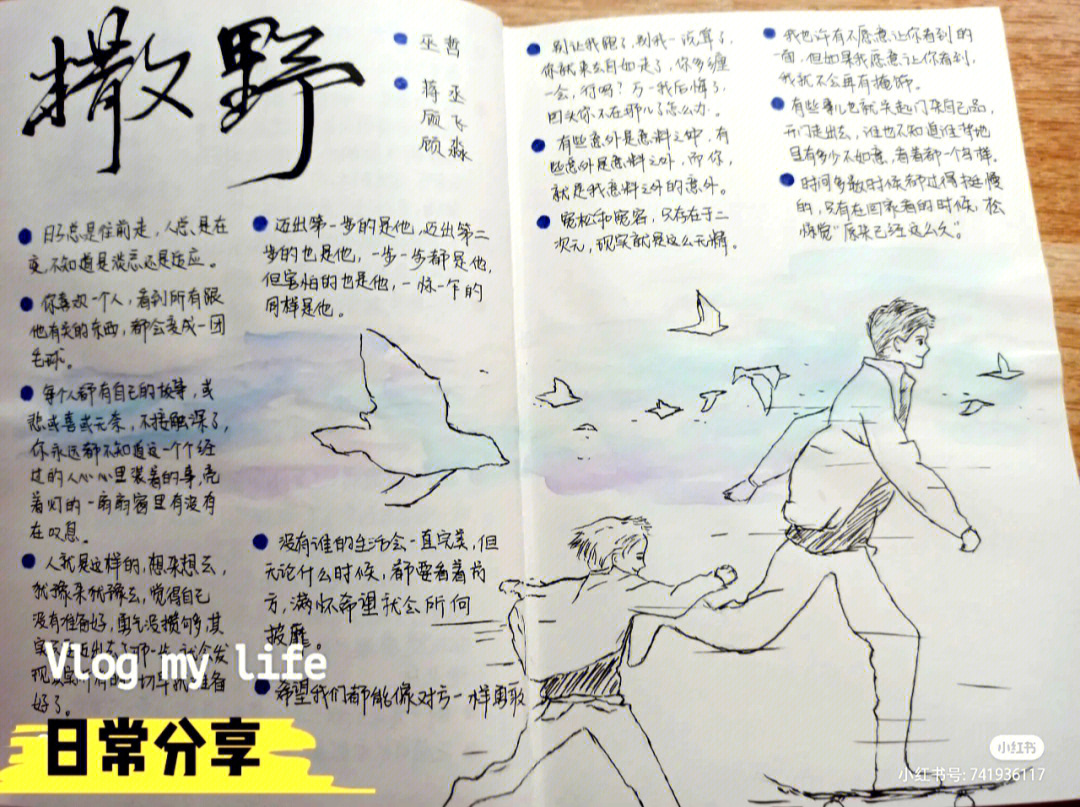 撒野
巫哲
蒋丞
顾飞
顾淼
日子总是往前走，人总是在
变，不知道是淡忘还是适应。
你喜欢一个人，看到所有跟
他有关的东西，都会变成一团
毛球。
每个人都有自己的故事，或
悲或喜或无奈，不接触深了，
你永远都不知道这一个个经
过的人心里装着的事，亮
着灯的一扇扇窗里有没有
在叹息。
人就是这样的，想来想去，
犹豫来犹豫去，觉得自己
没有准备好，勇气没攒够，其
好了。
迈出第一步的是他，迈出第二
步的也是他，一步一步都是他，
但害怕的也是他，一惊一乍的
同样是他。
没有谁的生活会一直完美，但
无论什么时候，都要看着前
方，满怀希望就会所向
披靡。
希望我们都能像对方一样勇敢
别让我跑了，别我一说算了，
你就来去自如走了，你多缠
一会，行吗？万一我后悔了，
回头你不在那儿了怎么办。
有些意外是意料之中，有
些意外是意料之外，而你，
就是我意料之外的意外。
宽松和宽容，只存在于二
次元，现实就是这么无情。
我也许有不愿意让你看到的
一面，但如果我愿意让你看到，
我就不会再有掩饰。
有些事儿也就关起门来自己品，
开门走出去，谁也不知道谁背地
里有多少不如意，看着都一个样。
时间多数时候都过得挺慢
的，只有在回头看的时候，会
惊觉“原来已经这么久”。
Vlog my life
日常分享
小红书
小红书号: 741936117